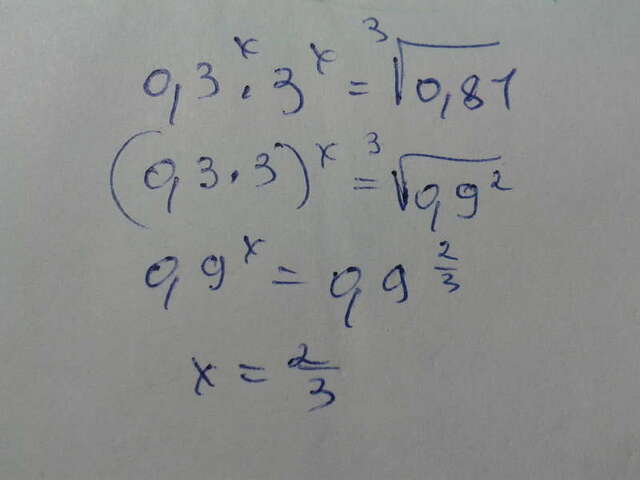 0,3^x · 3^x = ∛0,81
(0,3 · 3)^x = ∛0,9²
0,9^x = 0,9^(2/3)
x = 2/3